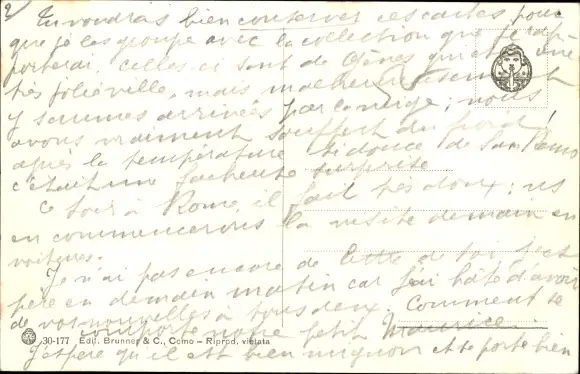 2/ Tu voudras bien conserver ces cartes pour
que je les groupe avec la collection que je rap-
porterai. Celles-ci sont de Gênes qui est une
très jolie ville, mais malheureusement
y sommes arrivés par la neige ; nous
avons vraiment souffert du froid !
après la température si douce de San Remo
c'était une fâcheuse surprise
Ce soir à Rome, il fait très doux ; ns
en commencerons la visite demain en
voitures.
Je n'ai pas encore de lettre de toi, j'es
père en demain matin car j'ai hâte d'avoir
de vos nouvelles à tous deux. Comment se
comporte notre petit Maurice.
30-177 Edit. Brunner & C., Como – Riprod. vietata
J'espère qu'il est bien mignon et se porte bien